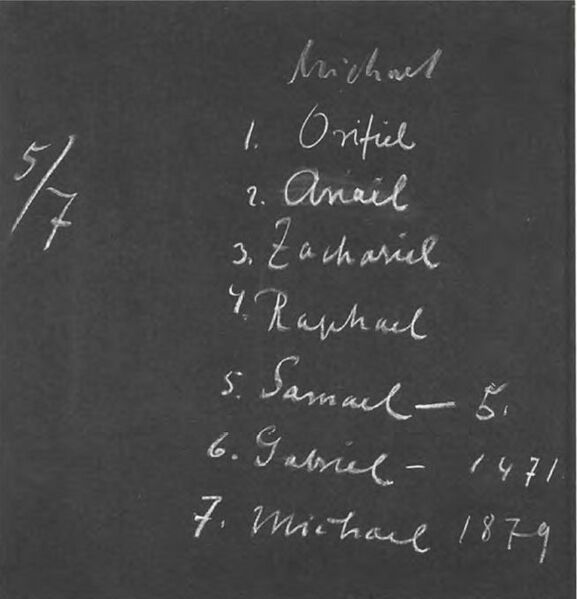 Michael
1. Orifiel
2. Anaël
3. Zachariel
4. Raphael
5/7
5. Samael — 5.
6. Gabriel – 1471.
7. Michael 1879